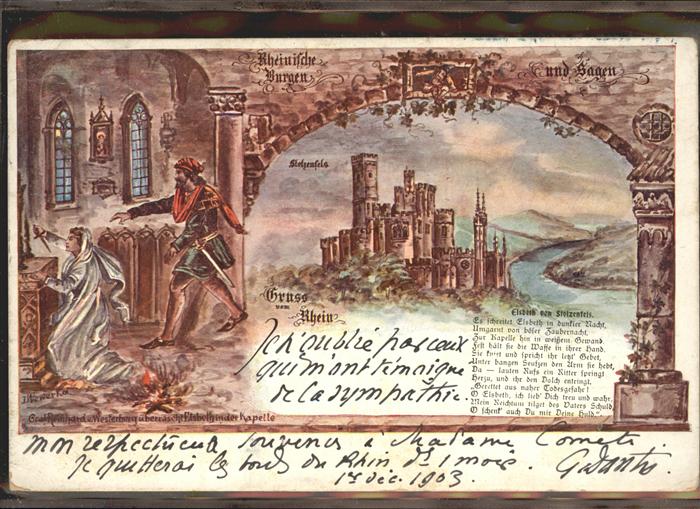 Rheinische
Burgen
und Sagen
Stolzenfels
Gruss
vom
Rhein
Elsbeth von Stolzenfels.
Es schreitet Elsbeth in dunkler Nacht,
Umgarnt von böser Zaubernacht,
Zur Kapelle hin in weißem Gewand.
Fest hält sie die Waffe in ihrer Hand.
Sie kniet und spricht ihr letzt' Gebet,
Unter bangen Seufzen den Arm sie hebt,
Da — lauten Rufs ein Ritter springt
Herzu, und ihr den Dolch entringt.
Gerettet aus naher Todesgefahr!
O Elsbeth, ich lieb' Dich treu und wahr,
Mein Reichtum tilget des Vaters Schuld,
O schenk' auch Du mir Deine Huld."
Graf Reinhard v. Westerburg überrascht Elsbeth in der Kapelle
Je n'oublie pas ceux
qui m'ont témoigné
de la sympathie.
mon respectueux souvenir à Madame
Je quitterai les bords du Rhin ds 1 mois.
1er déc. 1903.